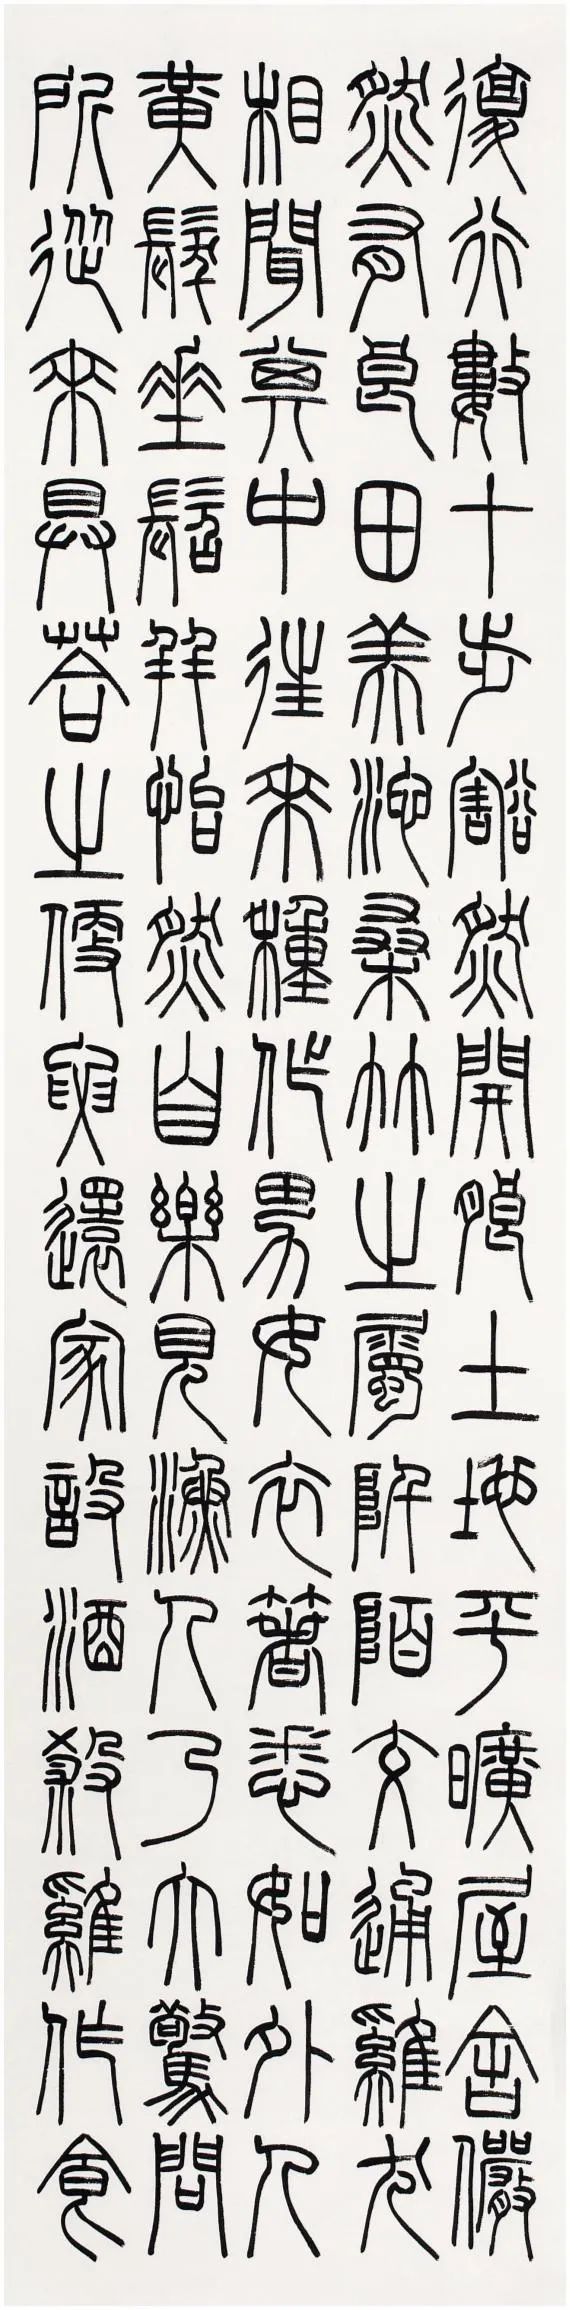 復行數十步豁然開朗土地平曠屋舍儼
然有良田美池桑竹之屬阡陌交通雞犬
相聞其中往來種作男女衣著悉如外人
黃髮垂髫并怡然自樂見漁人乃大驚問
所從來具荅之便要還家設酒殺雞作食